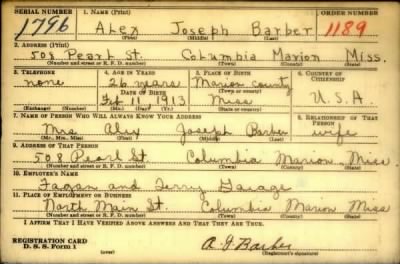 SERIAL NUMBER 1. NAME (Print) ORDER NUMBER
1796 Alex Joseph Barber 1189
(First) (Middle) (Last)
2. ADDRESS (Print)
508 Pearl St. Columbia Marion Miss.
(Number and street or R. F. D. number) (Town) (County) (State)
3. TELEPHONE 4. AGE IN YEARS 5. PLACE OF BIRTH 6. COUNTRY OF CITIZENSHIP
none 26 years Marion County
DATE OF BIRTH (Town or county)
Feb 11 1913 Miss U.S.A.
(Exchange) (Number) (Mo.) (Day) (Yr.) (State or country)
7. NAME OF PERSON WHO WILL ALWAYS KNOW YOUR ADDRESS 8. RELATIONSHIP OF THAT PERSON
Mrs Alex Joseph Barber wife
(Mr., Mrs., Miss) (First) (Middle) (Last)
9. ADDRESS OF THAT PERSON
508 Pearl St. Columbia Marion Miss
(Number and street or R. F. D. number) (Town) (County) (State)
10. EMPLOYER'S NAME
Fagan and Terry Garage
11. PLACE OF EMPLOYMENT OR BUSINESS
North Main St. Columbia Marion Miss
(Number and street or R. F. D. number) (Town) (County) (State)
I AFFIRM THAT I HAVE VERIFIED ABOVE ANSWERS AND THAT THEY ARE TRUE.
REGISTRATION CARD
D. S. S. Form 1 A J Barber
(Registrant's signature)